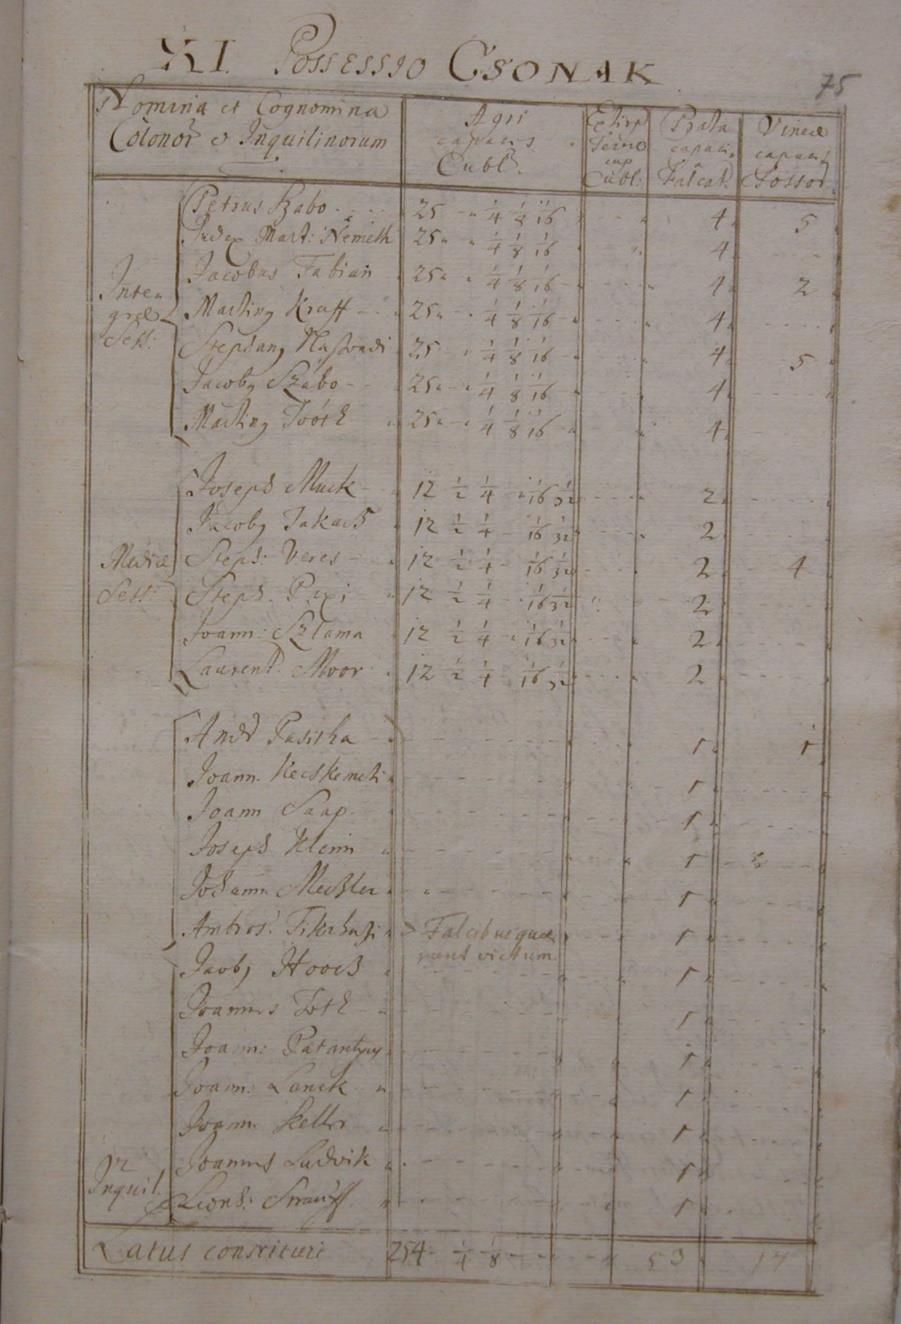 XI. Possessio Csonak
75
Nomina et Cognomina
Colonor et Inquilinorum
Agri
capacis
Cubl.
Extirp
cap
Cubl.
Prata
capac.
Falcat.
Vineæ
capac.
Fossor.
Inte-
græ
Sess:
Petrus Szabo 25 1/4 1/8 1/16 4 5
Judex Mart: Németh 25 1/4 1/8 1/16 4
Jacobus Fabian 25 1/4 1/8 1/16 4 2
Martinq Kraff 25 1/4 1/8 1/16 4
Stephanq 25 1/4 1/8 1/16 4 5
Jacobq Szabo 25 1/4 1/8 1/16 4
Martinq Tóóth 25 1/4 1/8 1/16 4
Mediæ
Sess:
Joseph Muck 12 1/2 1/4 1/16 1/32 2
Jacobq Takach 12 1/2 1/4 1/16 1/32 2
Steph: Veres 12 1/2 1/4 1/16 1/32 2 4
Steph. Pepi 12 1/2 1/4 1/16 1/32 2
Joann: Szlama 12 1/2 1/4 1/16 1/32 2
Laurent. Moor 12 1/2 1/4 1/16 1/32 2
Andr Pasitka 1 1
Joann. Kecskemeti 1
Joann Saap 1
Joseph Klein 1
Johann Mechler 1
Ambros. 1
Falcibus quæ
runt victum
Jacobq Hooch 1
Joannes Toth 1
Joann: Patantyus 1
Joann: Lanck 1
Joann. Keller 1
Inquil.
Joannes Ludvik 1
Leonh: Strauss 1
Latus constituit 254 1/4 1/8 53 17